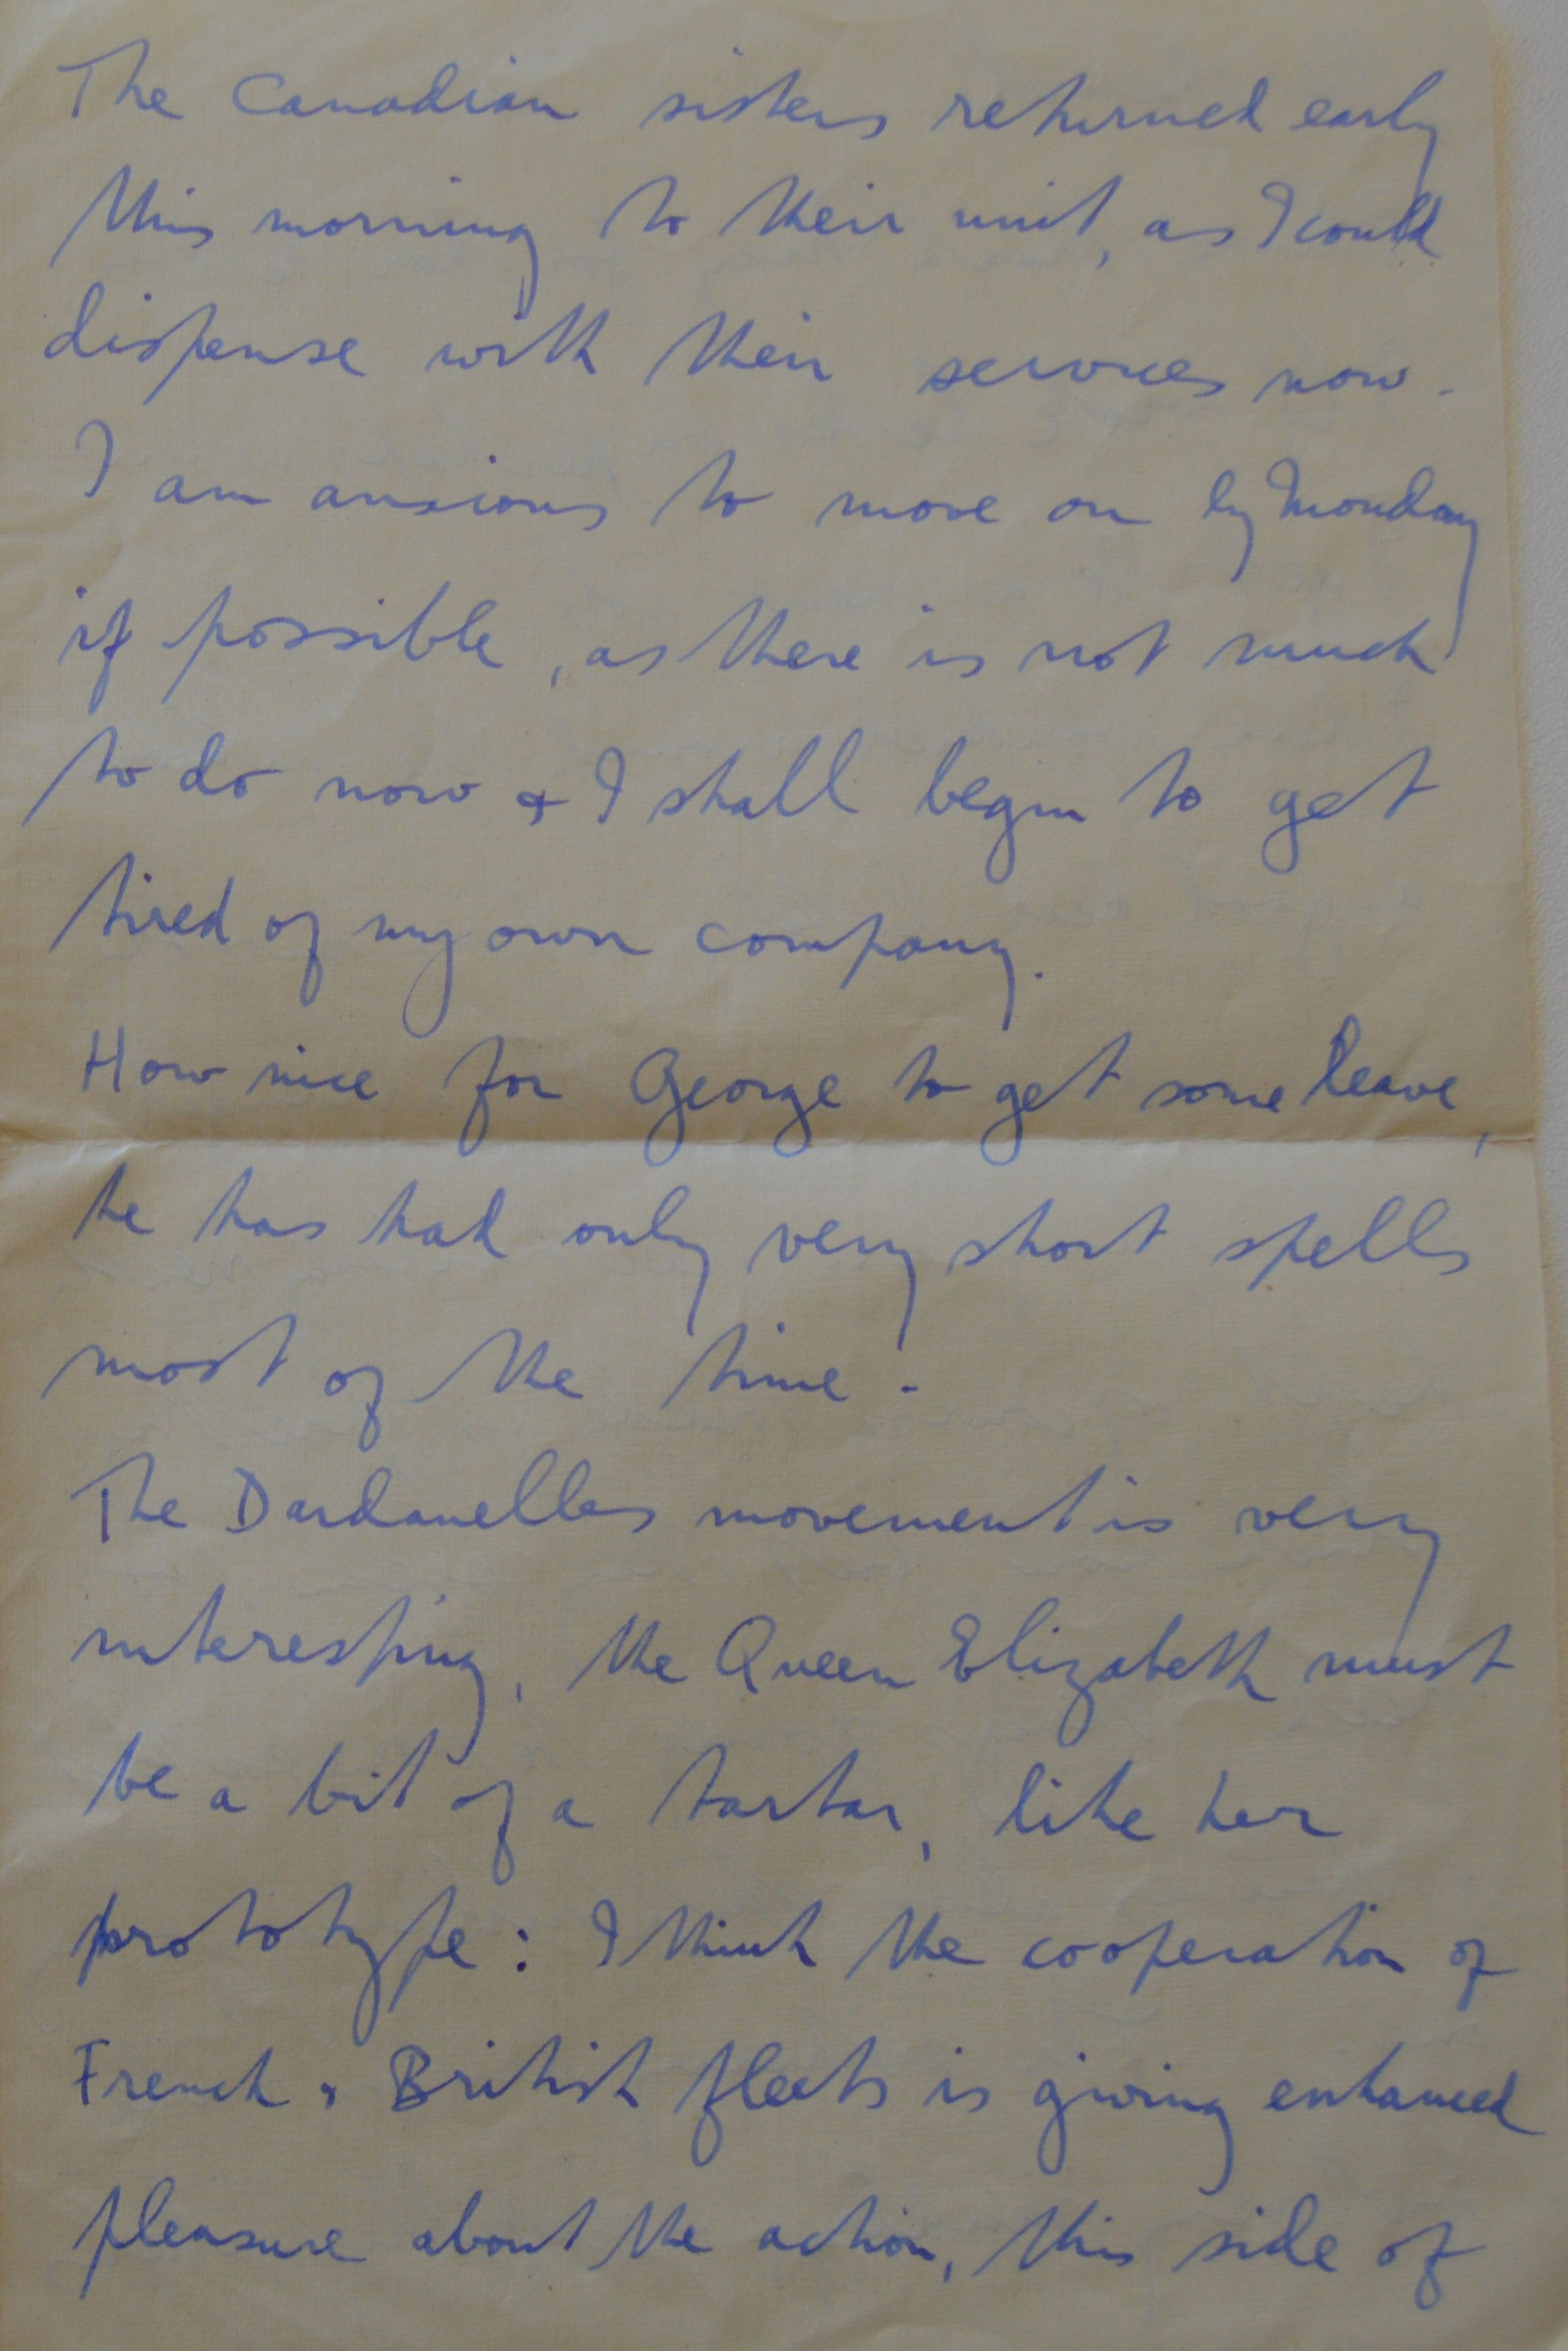 The Canadian sisters returned early
this morning to their unit, as I could
dispense with their services now.
I am anxious to move on by Monday
if possible, as there is not much
to do now & I shall begin to get
tired of my own company.
How nice for George to get some leave,
he has had only very short spells
most of the time.
The Dardanelles movement is very
interesting, the Queen Elizabeth must
be a bit of a tartar, like her
prototype: I think the cooperation of
French & British fleets is giving enhanced
pleasure about the action, this side of